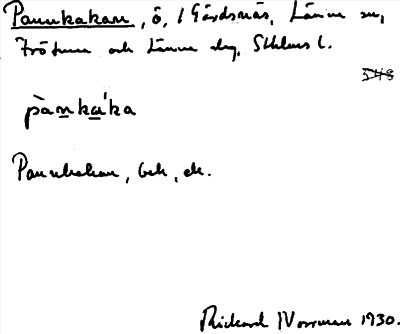 Pannkakan, ö, / Gårdsnäs, Länna sn,
Frötuna och Länna skg, Sthlms l.
548
pànka̱ka
Pannkakan, bek, ek.
Rickard Norrman 1930.